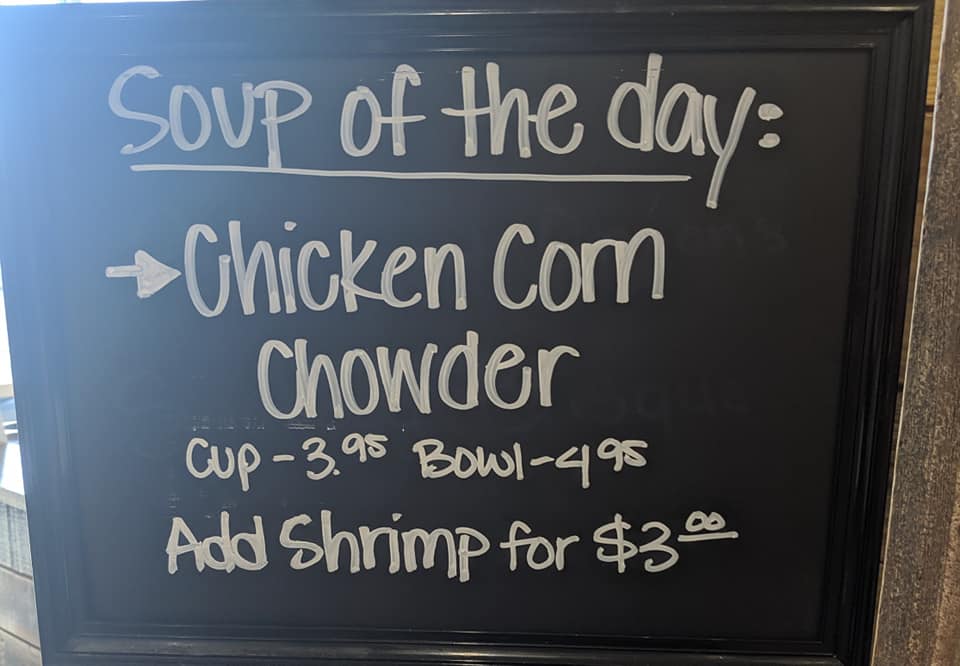 Soup of the day:
Chicken Corn
Chowder
Cup - 3.95 Bowl - 4 95
Add Shrimp for $3 00